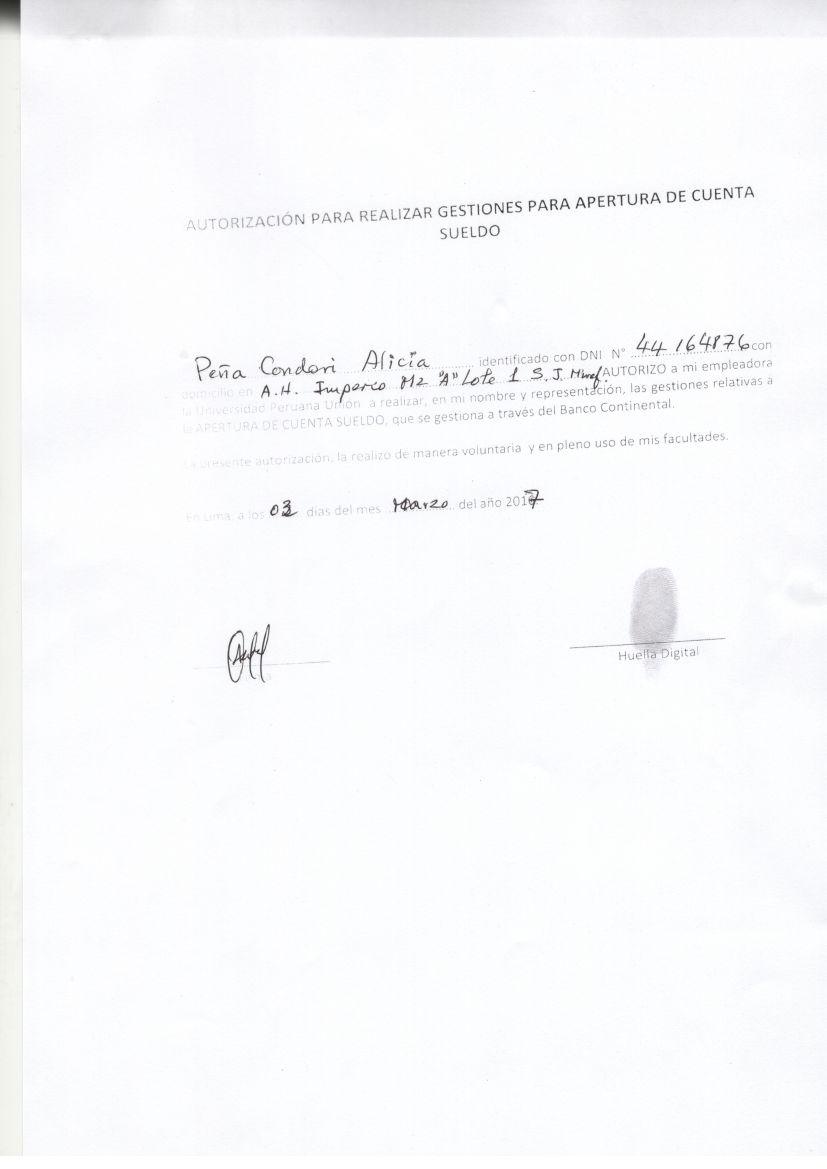 AUTORIZACIÓN PARA REALIZAR GESTIONES PARA APERTURA DE CUENTA
SUELDO
Peña Condori Alicia identificado con DNI N° 44164876 con
domicilio en A.H. Imperco Mz "A" Lote 1 S.J. AUTORIZO a mi empleadora
la Universidad Peruana Unión a realizar, en mi nombre y representación, las gestiones relativas a
la APERTURA DE CUENTA SUELDO, que se gestiona a través del Banco Continental.
La presente autorización, la realizo de manera voluntaria y en pleno uso de mis facultades.
En Lima, a los 03 días del mes Marzo del año 2017
Huella Digital